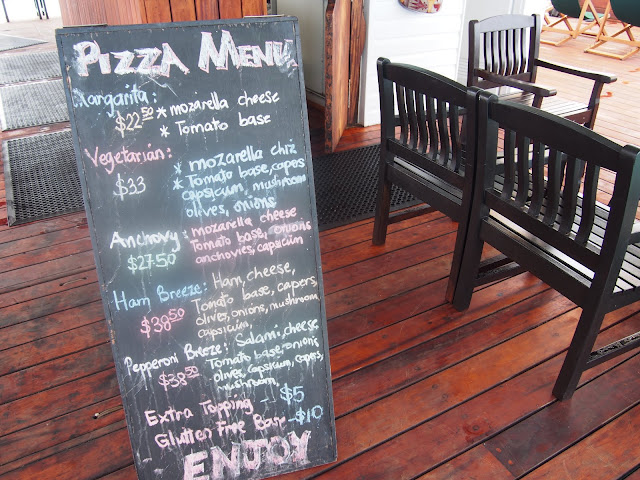 PIZZA MENU
Margarita: * mozarella cheese
$22.50 * Tomato base
Vegetarian: * mozarella chiz
$33 * Tomato base, capers
capsicum, mushroom
olives, onions
Anchovy: mozarella cheese
$27.50 Tomato base, onions
anchovies, capsicum
Ham Breeze: Ham, cheese,
Tomato base, capers
$38.50 olives, onions, mushroom
capsicum,
Pepperoni Breeze: Salami, cheese
$38.50 Tomato base, onions
olives, capsicum, capers,
mushroom,
Extra Topping - $5
- Glutten Free Base - $10
ENJOY